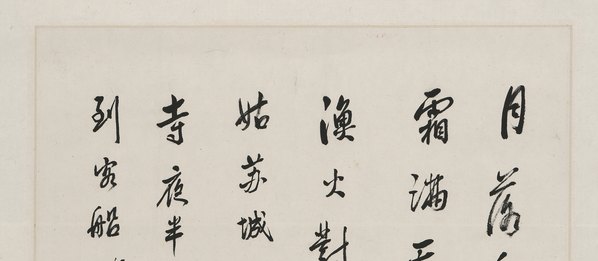 月落
霜滿天
漁火對
姑苏城
寺夜半
到客船